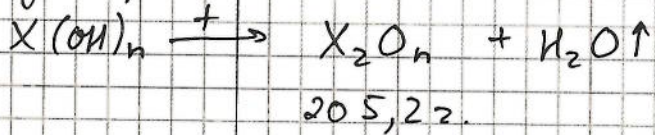 X(OH)ₙ —t→ X₂Oₙ + H₂O↑
205,2 г.